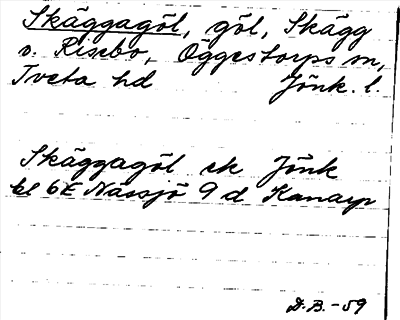 Skäggagöl, göl, Skägg
v. Risebo, Öggestorps sn,
Tveta hd Jönk. l.
Skäggagöl ek Jönk
bl 6E Nässjö 9 d Kanarp
D.B. -59